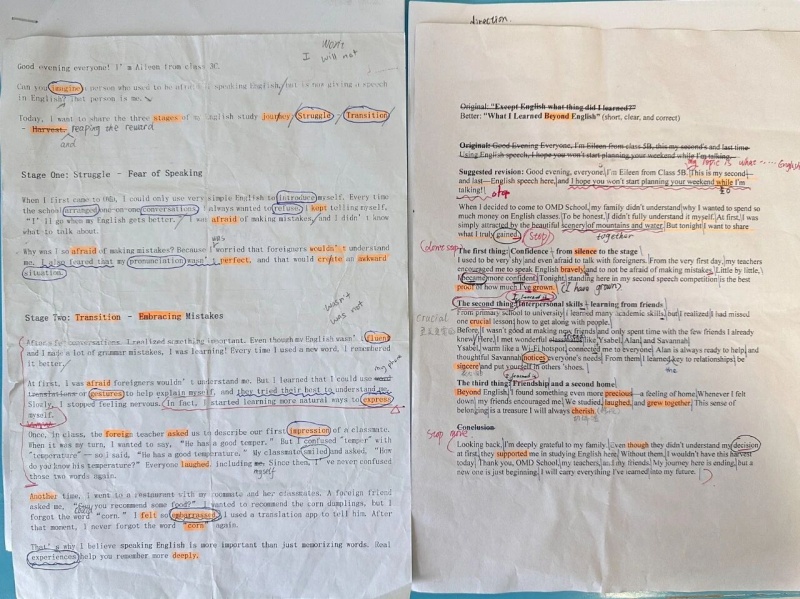 Won't
I will not
Good evening everyone! I'm Aileen from class 3C.
Can you imagine a person who used to be afraid of speaking English, but is now giving a speech
in English? That person is me.
Today, I want to share the three stages of my English study journey: Struggle, Transition
- Harvest. reaping the reward
and
Stage One: Struggle - Fear of Speaking
When I first came to OMD, I could only use very simple English to introduce myself. Every time
the school arranged one-on-one conversations, I always wanted to refuse. I kept telling myself,
"I'll go when my English gets better." I was afraid of making mistakes, and I didn't know
what to talk about.
was
Why was I so afraid of making mistakes? Because I worried that foreigners wouldn't understand
me. I also feared that my pronunciation wasn't perfect, and that would create an awkward
situation.
wasn't
was not
Stage Two: Transition - Embracing Mistakes
After a few conversations, I realized something important. Even though my English wasn't fluent
and I made a lot of grammar mistakes, I was learning! Every time I used a new word, I remembered
it better.
my phone
At first, I was afraid foreigners wouldn't understand me. But I learned that I could use
translations or gestures to help explain myself, and they tried their best to understand me.
Slowly, I stopped feeling nervous. In fact, I started learning more natural ways to express
myself.
Once, in class, the foreign teacher asked us to describe our first impression of a classmate.
When it was my turn, I wanted to say, "He has a good temper." But I confused "temper" with
"temperature" — so I said, "He has a good temperature." My classmate smiled and asked, "How
do you know his temperature?" Everyone laughed, including me. Since then, I've never confused
myself
those two words again.
Another time, I went to a restaurant with my roommate and her classmates. A foreign friend
asked me, "Can you recommend some food?" I wanted to recommend the corn dumplings, but I
could
forgot the word "corn." I felt so embarrassed. I used a translation app to tell him. After
that moment, I never forgot the word "corn" again.
That's why I believe speaking English is more important than just memorizing words. Real
experiences help you remember more deeply.
direction.
Original: "Except English what thing did I learned?"
Better: "What I Learned Beyond English" (short, clear, and correct)
Original: Good Evening Everyone, I'm Eileen from class 5B, this my second's and last time
Using English speech, I hope you won't start planning your weekend while I'm talking.
my topic is what ...... English
Suggested revision: Good evening, everyone, I'm Eileen from Class 5B. This is my second
and last—English speech here, and I hope you won't start planning your weekend while I'm
talking! stop
When I decided to come to OMD School, my family didn't understand why I wanted to spend
so much money on English classes. To be honest, I didn't fully understand it myself. At first, I
was simply attracted by the beautiful scenery of mountains and water. But tonight I want to share
what I truly gained. (Stop) together
The first thing: Confidence - from silence to the stage
I used to be very shy and even afraid to talk with foreigners. From the very first day, my teachers
encouraged me to speak English bravely and to not be afraid of making mistakes. Little by little, I
became more confident. Tonight, standing here in my second speech competition is the best
proof of how much I've grown. (I have grown)
I learned is
The second thing: Interpersonal skills - learning from friends
From primary school to university I learned many academic skills, but I realized I had missed
crucial
one crucial lesson: how to get along with people.
Before, I wasn't good at making new friends and only spent time with the few friends I already
knew. Here, I met wonderful classmates like Ysabel, Alan and Savannah.
Ysabel, warm like a Wi-Fi hotspot, connected me to everyone. Alan is always ready to help, and
thoughtful Savannah notices everyone's needs. From them I learned key to relationships: be
the
sincere and put yourself in others' shoes.
The third thing: Friendship and a second home
Beyond English, I found something even more precious—a feeling of home. Whenever I felt
down, my friends encouraged me. We studied, laughed, and grew together. This sense of
belonging is a treasure I will always cherish.
Conclusion
Looking back, I'm deeply grateful to my family. Even though they didn't understand my decision
at first, they supported me in studying English here. Without them, I wouldn't have this harvest
today.
Thank you, OMD School, my teachers, and my friends. My journey here is ending, but a
new one is just beginning. I will carry everything I've learned into my future.